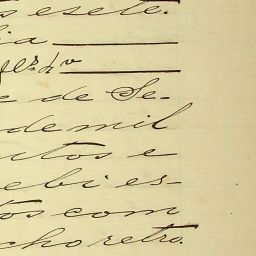 s esete.
ia
e de Se-
de mil
utos e
ebi es-
tos com
cho retro.